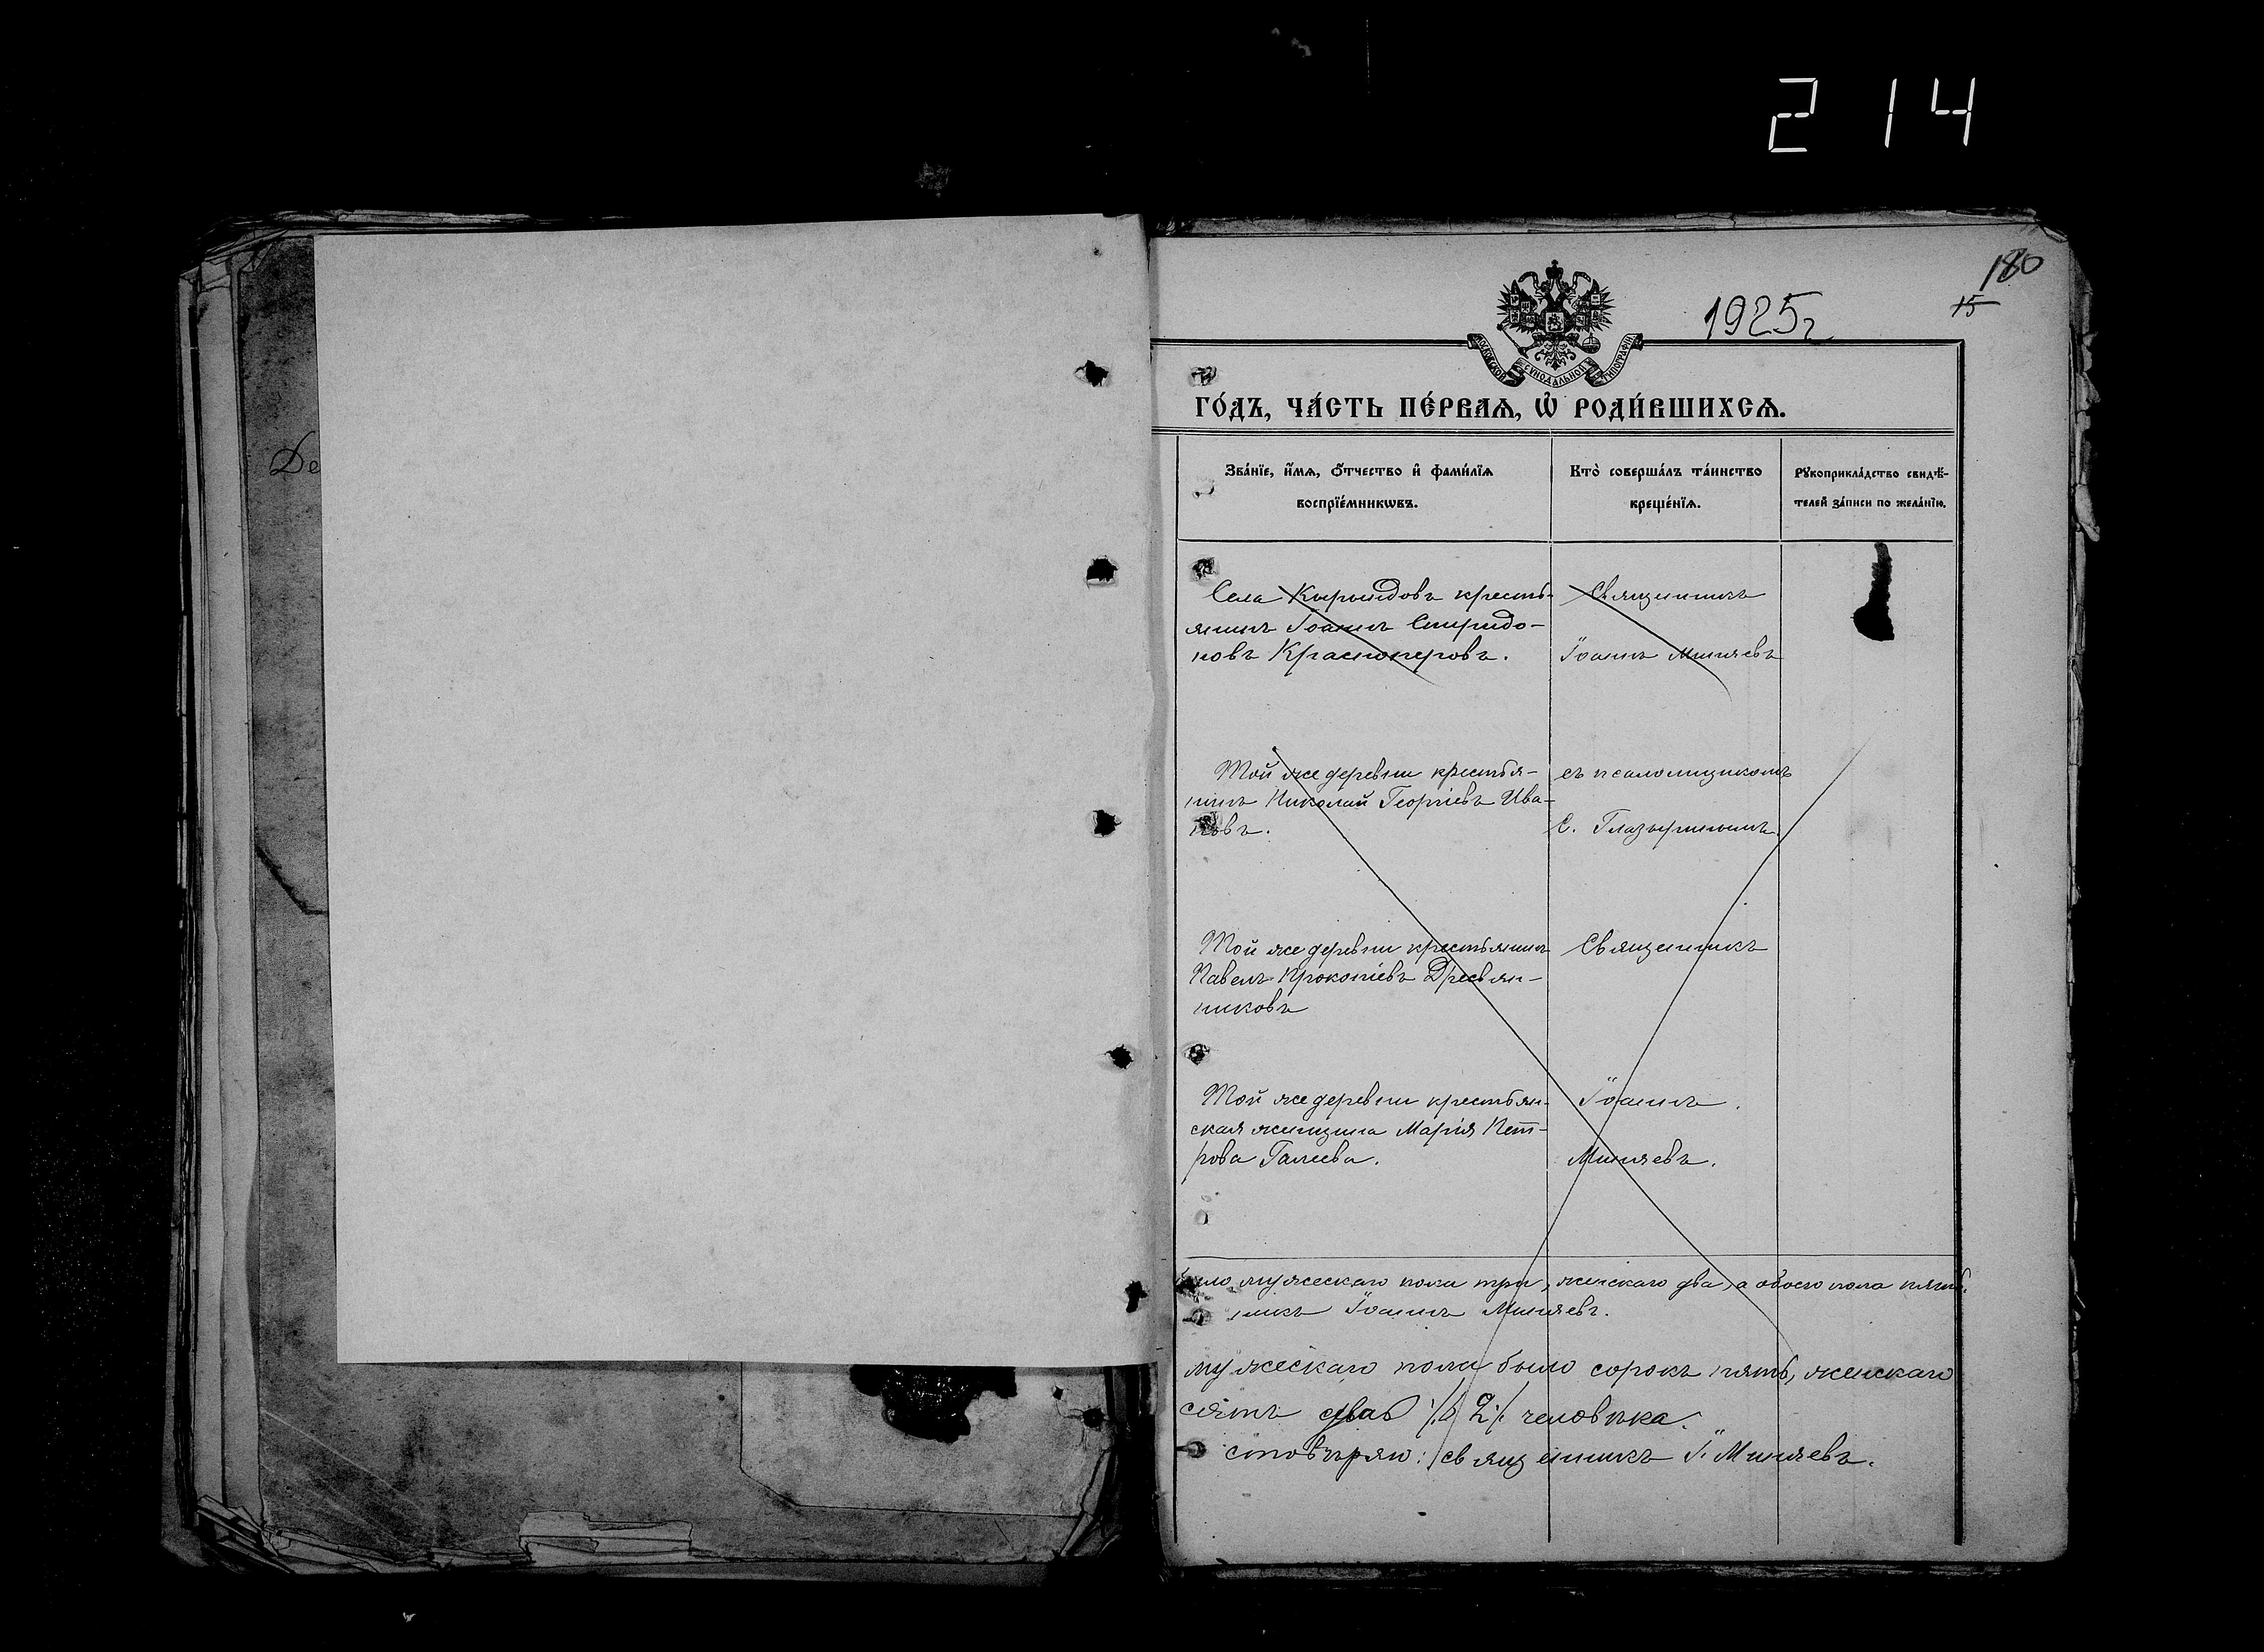 214
180
15
1925г
СѴНОДАЛЬНОЙ ТИПОГРАФІИ
Го́дъ, ча́сть пе́рваѧ, ѡ҆ роди́вшихсѧ.
Зва́нїе, и҆́мѧ, ѻ҆́тчество и҆ фами́лїѧ
воспрїе́мникѡвъ.
Кто̀ соверша́лъ та́инство
креще́нїѧ.
Рꙋкоприкла́дство свидѣ́-
телей за́писи по жела́нїю.
Де
Села крестья-
янинъ Іоаннъ Спиридо-
новъ Красноперовъ.
Священникъ
Іоаннъ Миняевъ
Той же деревни крестья-
нинъ Николай Георгіевъ Ива-
новъ.
съ псаломщикомъ
С. Глазыринымъ.
Той же деревни крестьянинъ
Павелъ Прокопіевъ Древян-
никовъ
Священникъ
Той же деревни крестьян-
ская женщина Марія Пет-
рова Галеева.
Іоаннъ
Миняевъ.
было мужескаго пола три, женскаго два, а обоего пола пять.
никъ Іоаннъ Миняевъ.
мужескаго пола было сорокъ пять, женскаго
сятъ два человѣка.
стовѣряю: священникъ І. Миняевъ.